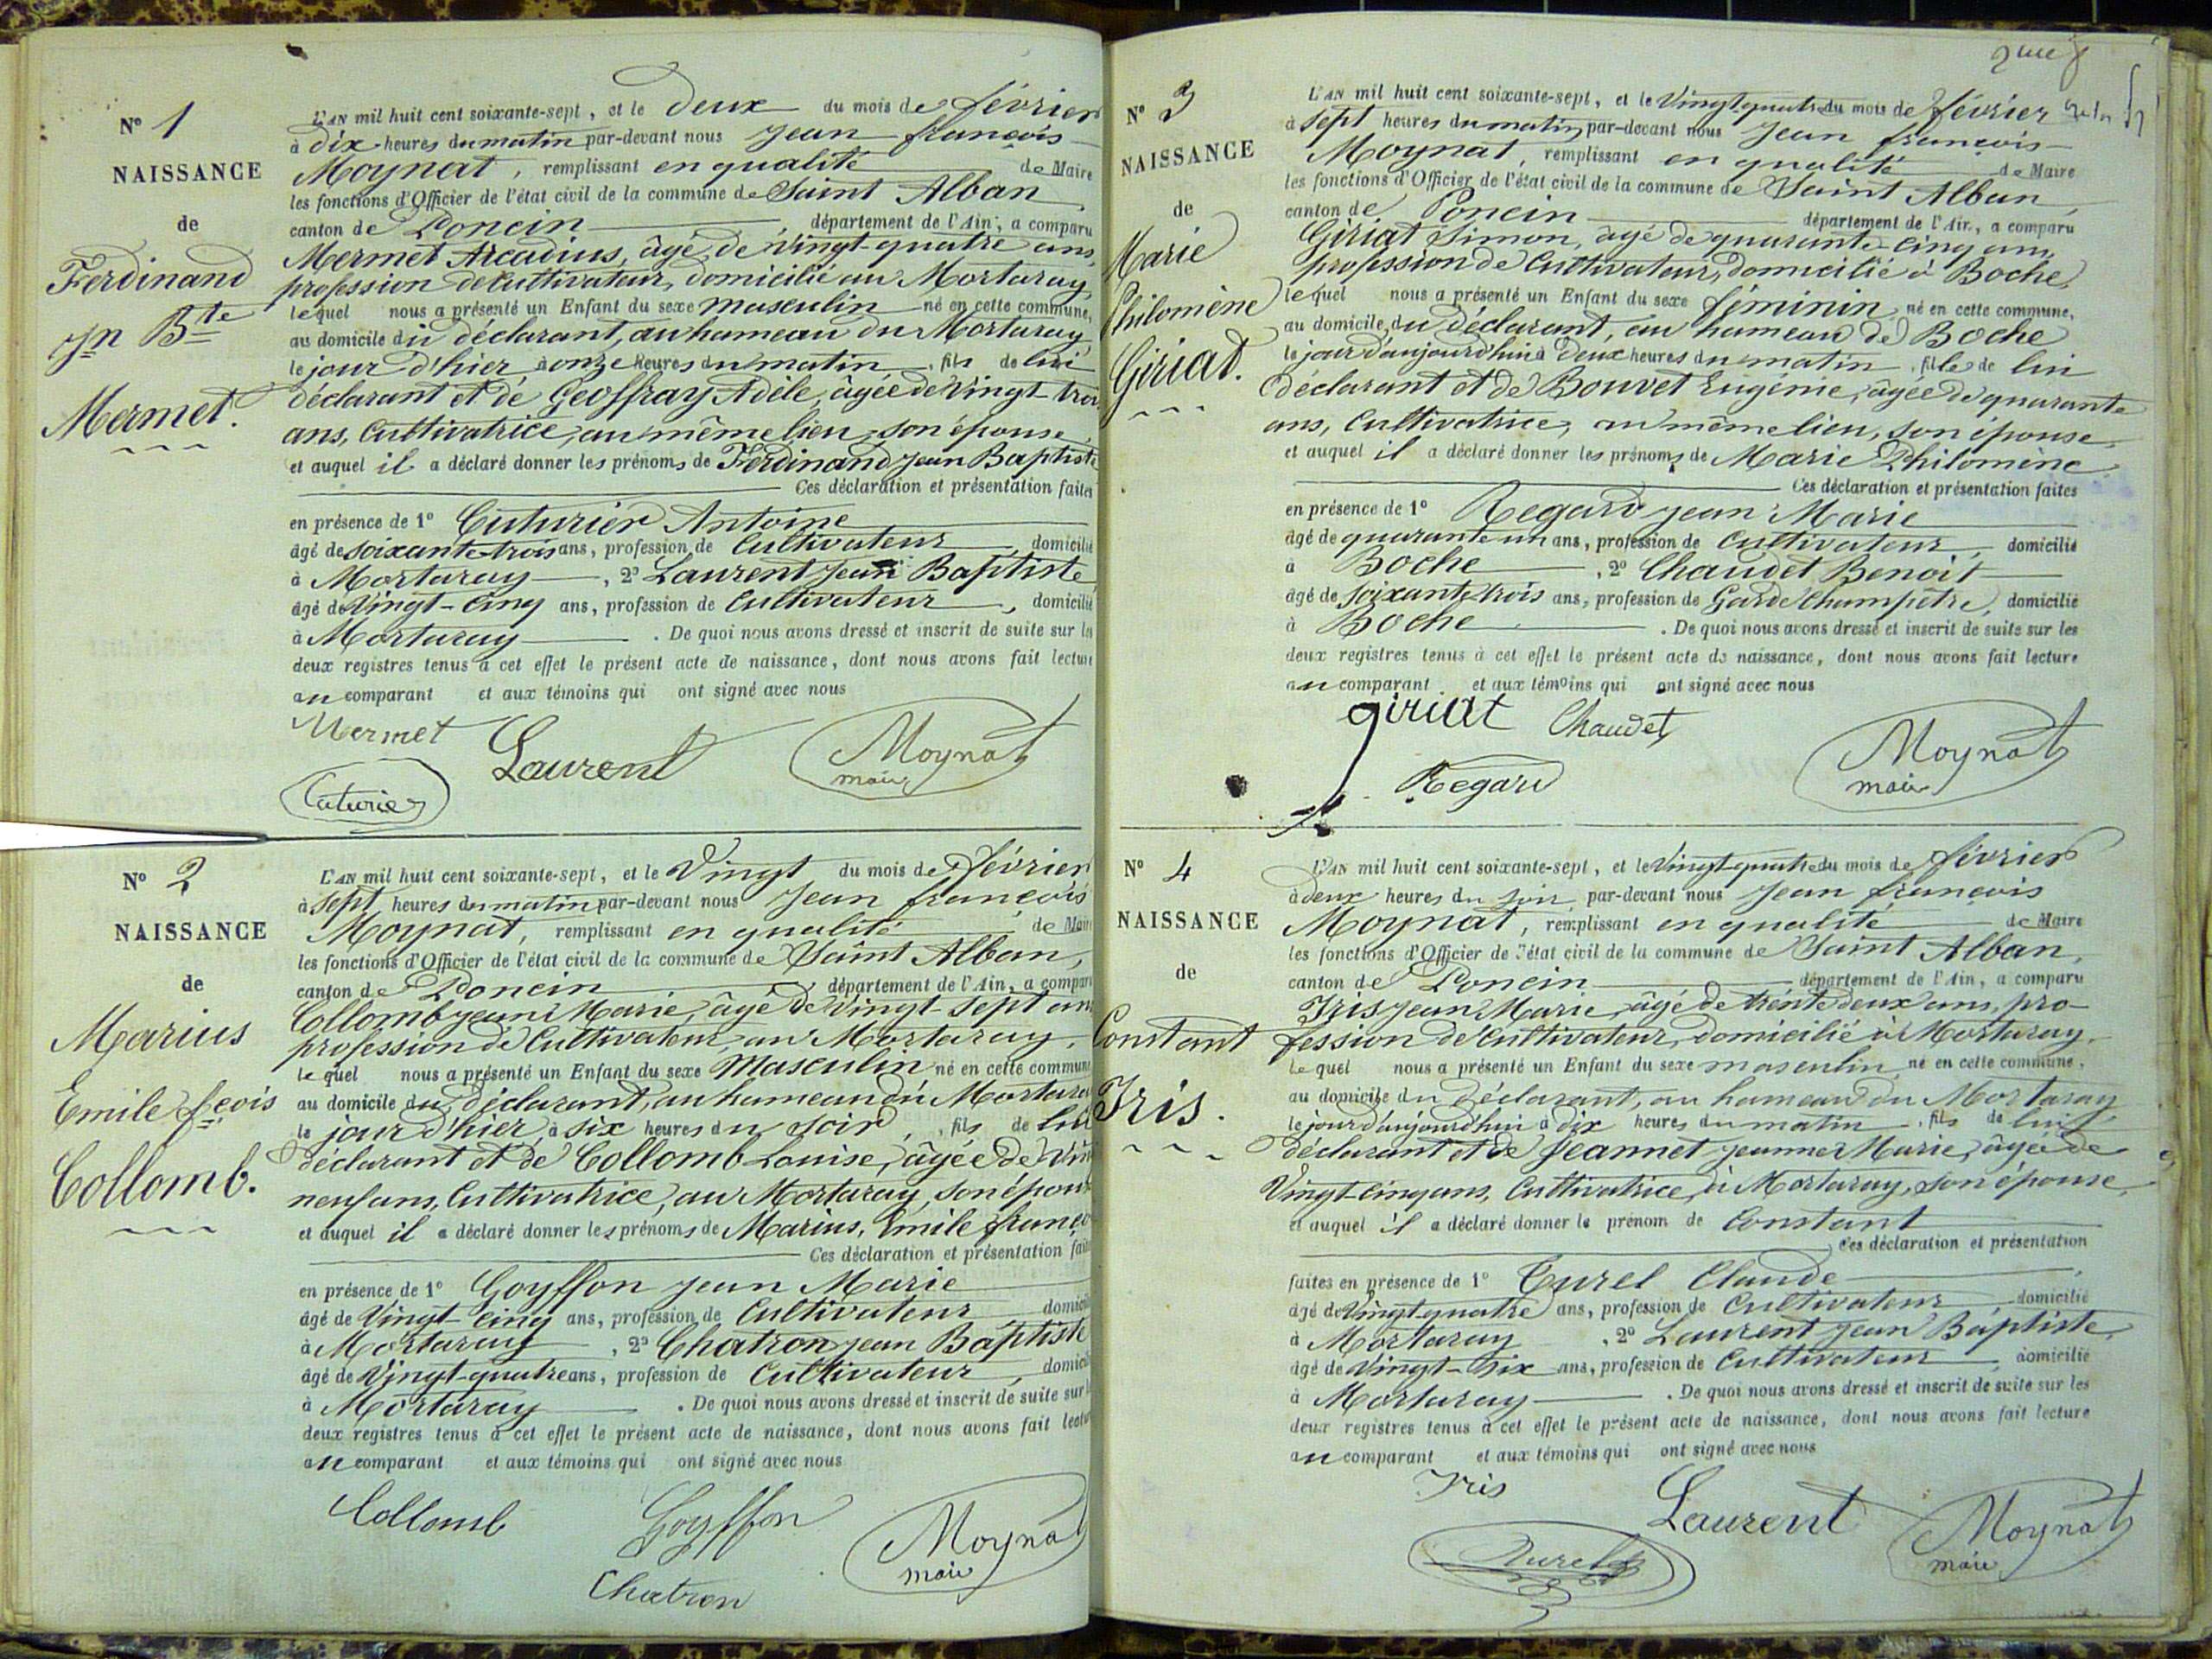 N° 1
NAISSANCE
de
Ferdinand
Jn Bte
Mermet.
L'AN mil huit cent soixante-sept, et le deux du mois de février
à dix heures du matin par-devant nous Jean françois
Moynat, remplissant en qualité de Maire
les fonctions d'Officier de l'état civil de la commune de Saint Alban,
canton de Poncin, département de l'Ain, a comparu
Mermet Arcadius, âgé de vingt-quatre ans,
profession de cultivateur, domicilié au Mortaray,
lequel nous a présenté un Enfant du sexe masculin né en cette commune,
au domicile du déclarant, au hameau du Mortaray
le jour d'hier à onze heures du matin, fils de lui
déclarant et de Geoffray Adèle, âgée de vingt-trois
ans, Cultivatrice, au même lieu, son épouse,
et auquel il a déclaré donner les prénoms de Ferdinand Jean Baptiste
Ces déclaration et présentation faites
en présence de 1° Cuturier Antoine
âgé de soixante-trois ans, profession de Cultivateur, domicilié
à Mortaray, 2° Laurent Jean Baptiste
âgé de vingt-cinq ans, profession de Cultivateur, domicilié
à Mortaray. De quoi nous avons dressé et inscrit de suite sur les
deux registres tenus à cet effet le présent acte de naissance, dont nous avons fait lecture
au comparant et aux témoins qui ont signé avec nous
Mermet Laurent Moynat
maire
Cuturier
N° 2
NAISSANCE
de
Marius
Emile fçois
Collomb.
L'AN mil huit cent soixante-sept, et le Vingt du mois de février
à Sept heures du matin par-devant nous Jean françois
Moynat, remplissant en qualité de Maire
les fonctions d'Officier de l'état civil de la commune de Saint Alban,
canton de Poncin, département de l'Ain, a comparu
Collomb Jean Marie, âgé de vingt-sept ans
profession de Cultivateur, au Mortaray,
lequel nous a présenté un Enfant du sexe Masculin né en cette commune
au domicile du déclarant, au hameau du Mortaray
le jour d'hier, à six heures du soir, fils de lui
déclarant et de Collomb Louise, âgée de vingt
neuf ans, Cultivatrice, au Mortaray, son épouse
et auquel il a déclaré donner les prénoms de Marius, Emile françois
Ces déclaration et présentation faites
en présence de 1° Goyffon Jean Marie
âgé de Vingt-cinq ans, profession de Cultivateur domicilié
à Mortaray, 2° Chatron Jean Baptiste
âgé de Vingt-quatre ans, profession de Cultivateur, domicilié
à Mortaray. De quoi nous avons dressé et inscrit de suite sur les
deux registres tenus à cet effet le présent acte de naissance, dont nous avons fait lecture
au comparant et aux témoins qui ont signé avec nous
Collomb Goyffon Moynat
maire
Chatron
N° 3
NAISSANCE
de
Marie
Philomène
Giriat.
L'AN mil huit cent soixante-sept, et le Vingt quatre du mois de février
à Sept heures du matin par-devant nous Jean françois
Moynat, remplissant en qualité de Maire
les fonctions d'Officier de l'état civil de la commune de Saint Alban,
canton de Poncin département de l'Ain, a comparu
Giriat Simon, âgé de quarante-cinq ans,
profession de Cultivateur, domicilié à Boche,
lequel nous a présenté un Enfant du sexe féminin, né en cette commune,
au domicile du déclarant, au hameau de Boche
le jour d'aujourd'hui à deux heures du matin, fille de lui
déclarant et de Bouvet Eugénie, âgée de quarante
ans, Cultivatrice, au même lieu, son épouse,
et auquel il a déclaré donner les prénoms de Marie Philomène
Ces déclaration et présentation faites
en présence de 1° Regard Jean Marie
âgé de quarante-un ans, profession de Cultivateur, domicilié
à Boche, 2° Chaudet Benoit
âgé de soixante-trois ans, profession de Garde Champêtre, domicilié
à Boche. De quoi nous avons dressé et inscrit de suite sur les
deux registres tenus à cet effet le présent acte de naissance, dont nous avons fait lecture
au comparant et aux témoins qui ont signé avec nous
giriat Chaudet Moynat
maire
Regard
N° 4
NAISSANCE
de
Constant
Iris.
L'AN mil huit cent soixante-sept, et le Vingt-quatre du mois de février
à deux heures du soir par-devant nous Jean françois
Moynat, remplissant en qualité de Maire
les fonctions d'Officier de l'état civil de la commune de Saint Alban,
canton de Poncin département de l'Ain, a comparu
Iris Jean Marie, âgé de trente deux ans, pro-
fession de Cultivateur, domicilié à Mortaray,
lequel nous a présenté un Enfant du sexe masculin né en cette commune,
au domicile du déclarant, au hameau du Mortaray
le jour d'aujourd'hui à dix heures du matin, fils de lui
déclarant et de Jeannet Jeanne Marie, âgée de
Vingt-cinq ans, Cultivatrice, à Mortaray, son épouse,
et auquel il a déclaré donner le prénom de Constant
Ces déclaration et présentation
faites en présence de 1° Curel Claude
âgé de Vingt-quatre ans, profession de Cultivateur domicilié
à Mortaray, 2° Laurent Jean Baptiste,
âgé de Vingt-six ans, profession de Cultivateur, domicilié
à Mortaray. De quoi nous avons dressé et inscrit de suite sur les
deux registres tenus à cet effet le présent acte de naissance, dont nous avons fait lecture
au comparant et aux témoins qui ont signé avec nous
Iris Laurent Moynat
maire
Curel